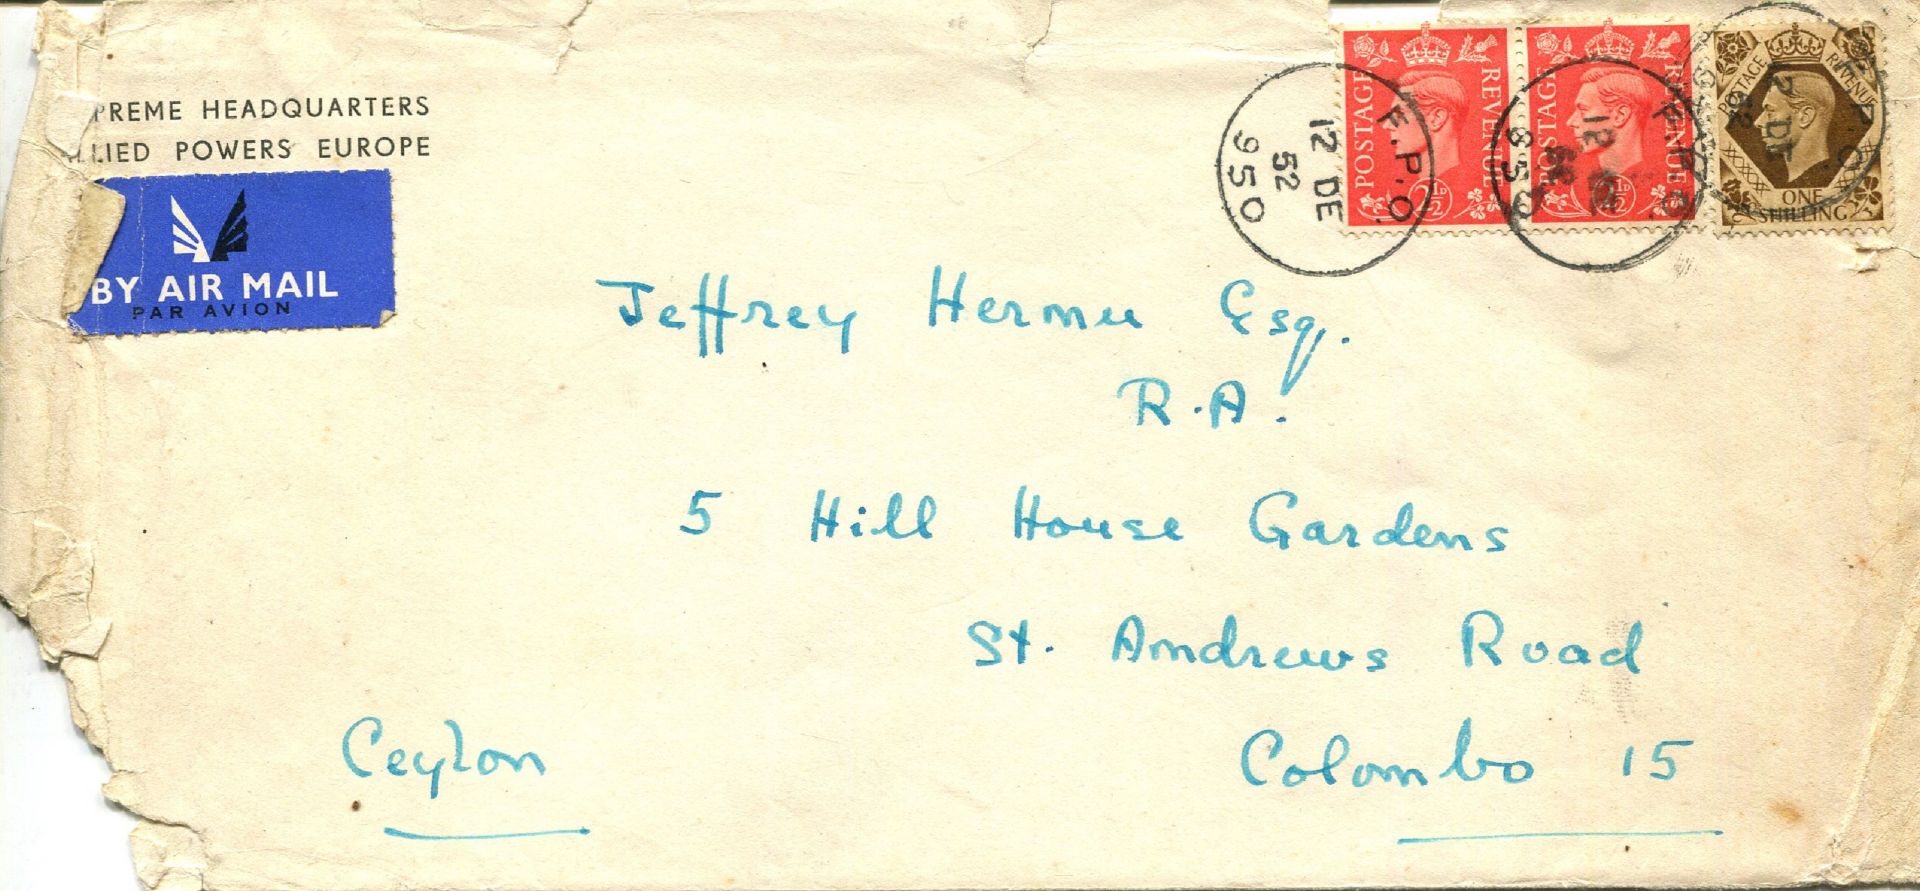 PREME HEADQUARTERS
LIED POWERS EUROPE
BY AIR MAIL
PAR AVION
POSTAGE REVENUE 2½D
POSTAGE REVENUE 2½D
POSTAGE REVENUE ONE SHILLING
F.P.O.
12 DE
52
950
F.P.O.
12
950
F.P.O.
2 DE
52
Jeffrey Hermu Esq.
R.A.
5 Hill House Gardens
St. Andrews Road
Colombo 15
Ceylon